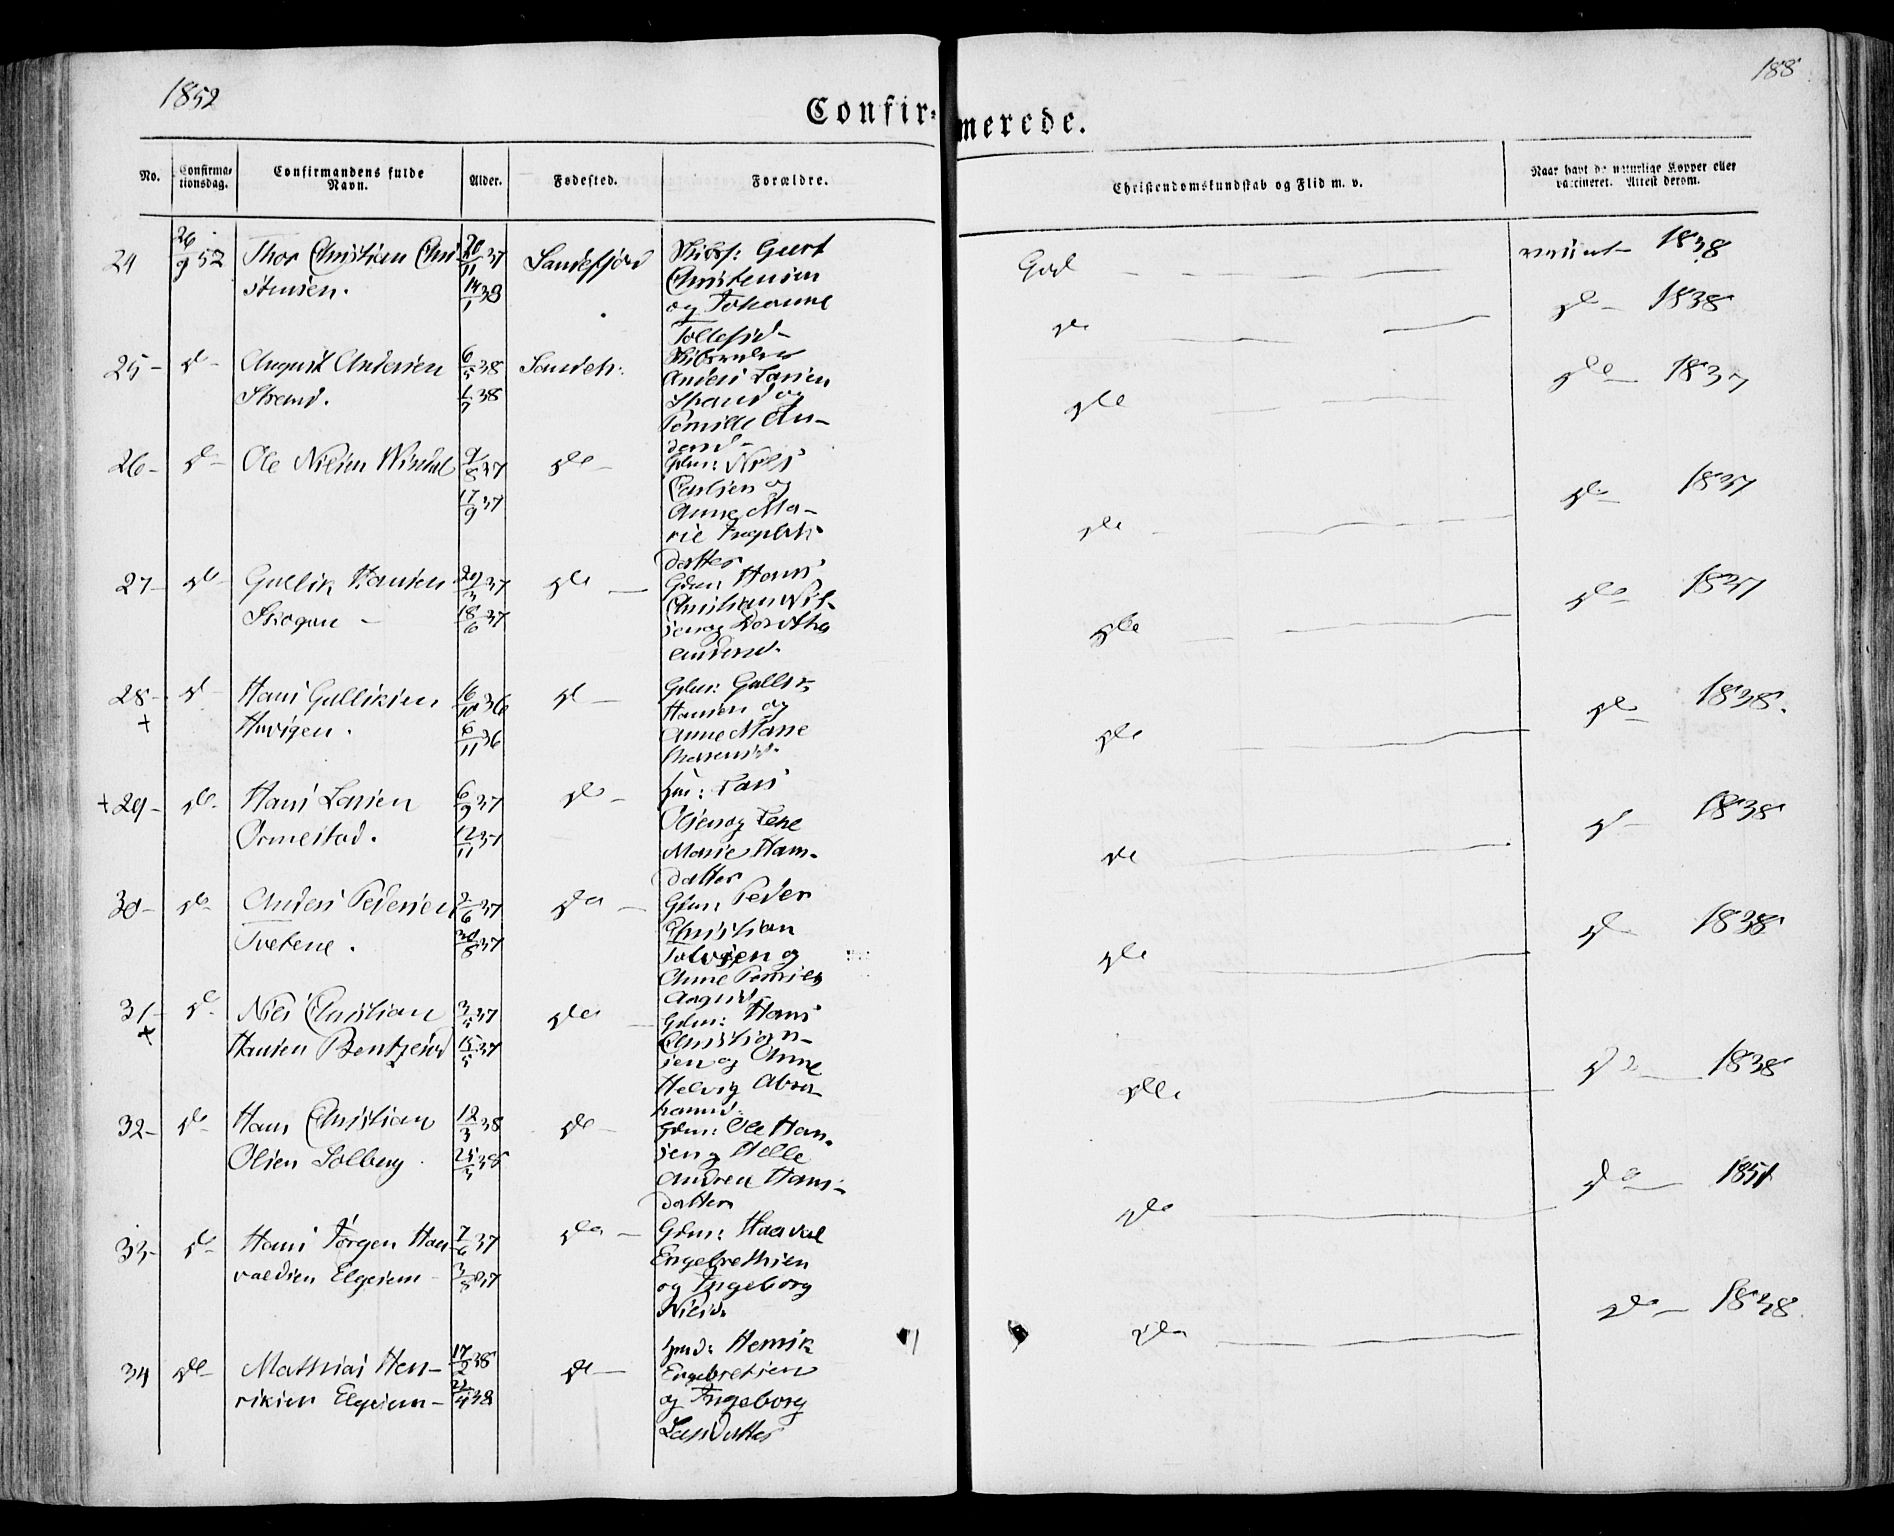 1852
188
Confir-
merede.
No.
Confirma-
tionsdag.
Confirmandens fulde
Navn.
Alder.
Fødested.
Forældre.
Christendomskundskab og Flid m. v.
Naar havt de naturlige Kopper eller
vaccineret. Attest derom.
24
26/9 52
Thor Christian Chri-
stensen.
20/11 37
14/1 38
Sandefjord
Skibsf: Guert
Christensen
og Johanne
Tollefsd-
God
vaccint- 1838
25-
d-
August Andersen
Strand.
6/5 38
1/7 38
Sandeh:
Anders Larsen
Strand og
Pernille An-
dersd-
do
do- 1838
26-
d-
Ole Nilsen Windal
9/8 37
17/9 37
do-
Gdm: Niels
Carlsen og
Anne Ma-
rie
datter
do
do- 1837
27-
do
Gullik Hansen
Skogan-
29/3 37
18/6 37
do-
Gdm Hans
Christian Nil-
sen og Dorthea
Andersd.
do-
do- 1837
28-
+
d
Hans Gulliksen
Havigen.
16/10 36
6/11 36
d-
Gdm: Gullik
Hansen og
Anne Marie
do
do- 1837
+29-
do-
Hans Larsen
Ormestad.
6/9 37
12/11 37
do-
Lars
Olsen og Lene
Marie Hans-
datter
do
do- 1838.
30-
do-
Anders Pedersen
Tvetene.
2/6 37
30/8 37
do-
Gdm: Peder
Christian
og
Anne
do
d- 1838
31-
+
do-
Niels Christian
Hansen Bentserød
3/5 37
15/5 37
do-
Gdm: Hans
Christian-
sen og Anne
Helvig Abra-
hamsd.
do
do 1838
32-
do-
Hans Christian
Olsen Solberg.
12/3 38
25/3 38
do-
Gdm: Ole Han-
sen og Helle
Andrea Hans-
datter
do
do- 1838
33-
do-
Hans Jørgen Haa-
valdsen Elgesem-
7/6 37
3/8 37
do-
Gdm: Haaval
Engebrethsen
og Ingeborg
Nielsd.
do
do- 1851
34
do-
Mathias Hen-
riksen Elgesem-
17/2 38
do-
Henrik
Engebretsen
og Ingeborg
Larsdatter
do
do- 1838.